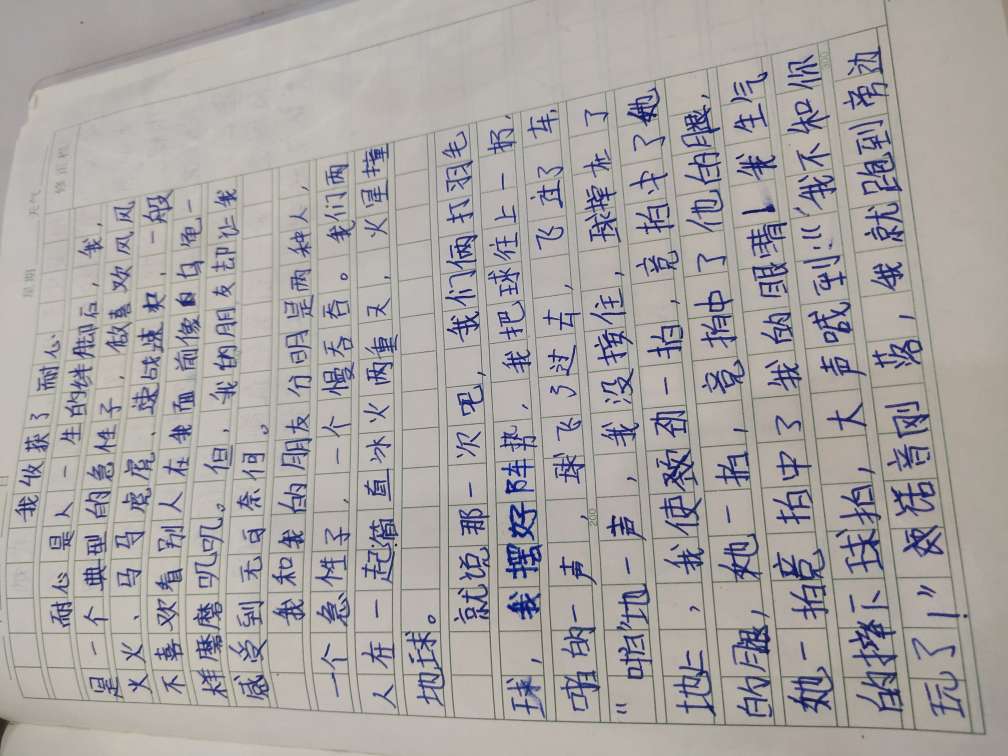 星期
天气
修正栏
我收获了耐心
耐心是人一生的绊脚石,我,
是一个典型的急性子,做喜欢风风
火火、马马虎虎、速战速决,一般
不喜欢看别人在我面前像乌龟一
样磨磨叽叽。但,我的朋友却让我
感受到无可奈何。
我和我的朋友分明是两种人,
一个急性子,一个慢吞吞。我们两
人在一起简直冰火两重天,火星撞
地球。
就说那一次吧,我们俩打羽毛
球,我摆好阵势,我把球往上一扔,
的一声 球飞了过车,飞过了车,
200
"啪"地一声,我没接住,球掉在了
地上,我使劲一拍,竟拍中了她
的腿,她一拍,竟拍中了他的腿,
她一拍竟拍中了我的眼睛!我生气
的摔下球拍,大声喊到:"我不和你
玩了!"话音刚落,我就跑到旁边
300